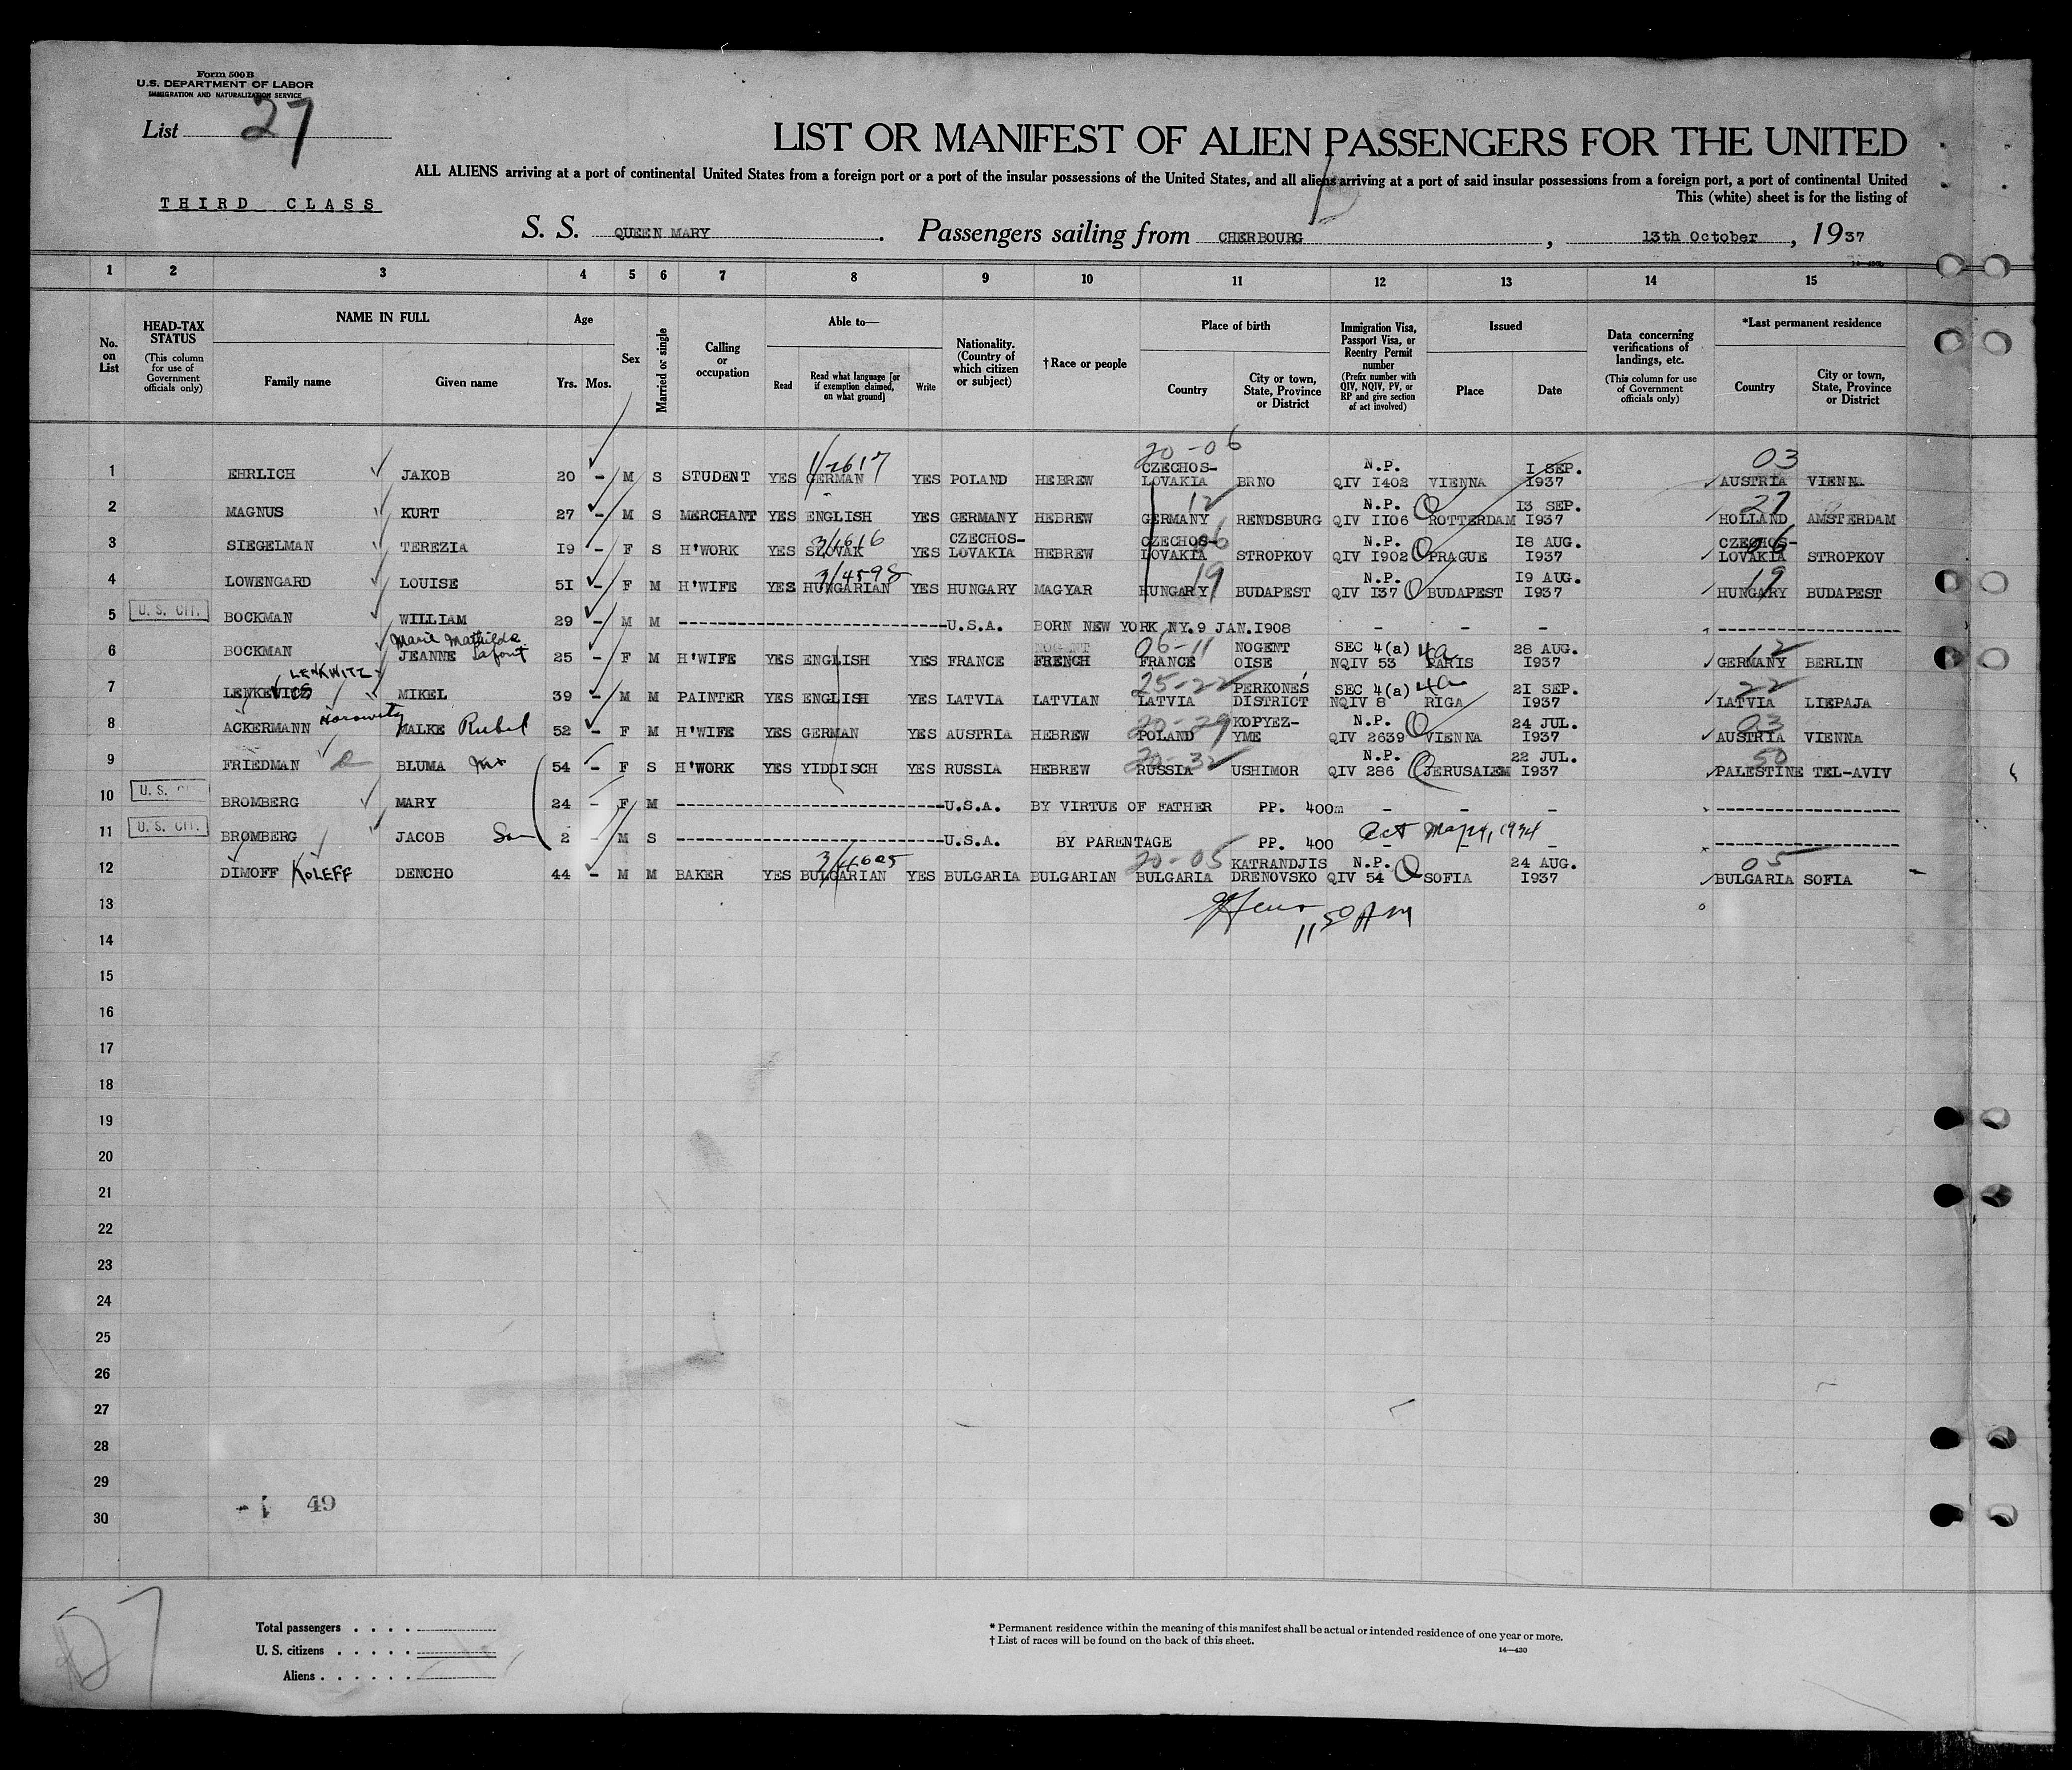 Form 500B
U.S. DEPARTMENT OF LABOR
IMMIGRATION AND NATURALIZATION SERVICE
List 27
LIST OR MANIFEST OF ALIEN PASSENGERS FOR THE UNITED
ALL ALIENS arriving at a port of continental United States from a foreign port or a port of the insular possessions of the United States, and all aliens arriving at a port of said insular possessions from a foreign port, a port of continental United
This (white) sheet is for the listing of
THIRD CLASS
S. S. QUEEN MARY. Passengers sailing from CHERBOURG, 13th October, 1937
1 2 3 4 5 6 7 8 9 10 11 12 13 14 15
No. on List
HEAD-TAX STATUS (This column for use of Government officials only)
NAME IN FULL
Family name Given name
Age
Yrs. Mos.
Sex
Married or single
Calling or occupation
Able to—
Read
Read what language [or if exemption claimed, on what ground]
Write
Nationality. (Country of which citizen or subject)
†Race or people
Place of birth
Country
City or town, State, Province or District
Immigration Visa, Passport Visa, or Reentry Permit number
(Prefix number with QIV, NQIV, PV, or RP and give section of act involved)
Issued
Place Date
Data concerning verifications of landings, etc.
(This column for use of Government officials only)
*Last permanent residence
Country
City or town, State, Province or District
20-06 03
1 EHRLICH JAKOB 20 - M S STUDENT YES GERMAN YES POLAND HEBREW CZECHOS-LOVAKIA BRNO N.P. QIV I402 VIENNA I SEP. I937 AUSTRIA VIENNA
2 MAGNUS KURT 27 - M S MERCHANT YES ENGLISH YES GERMANY HEBREW GERMANY 12 RENDSBURG N.P. QIV II06 ROTTERDAM I3 SEP. I937 HOLLAND 27 AMSTERDAM
3 SIEGELMAN TEREZIA I9 - F S H'WORK YES SLOVAK YES CZECHOS-LOVAKIA HEBREW CZECHOS-LOVAKIA 06 STROPKOV N.P. QIV I902 PRAGUE I8 AUG. I937 CZECHOS-LOVAKIA 06 STROPKOV
4 LOWENGARD LOUISE 5I - F M H'WIFE YES HUNGARIAN YES HUNGARY MAGYAR HUNGARY 19 BUDAPEST N.P. QIV I37 BUDAPEST I9 AUG. I937 HUNGARY 19 BUDAPEST
5 U.S. CIT. BOCKMAN WILLIAM 29 - M M U.S.A. BORN NEW YORK NY.9 JAN.I908 - - -
Marie Mathilde Lafont
6 BOCKMAN JEANNE 25 - F M H'WIFE YES ENGLISH YES FRANCE FRENCH 06-11 FRANCE NOGENT OISE SEC 4(a) 4a NQIV 53 PARIS 28 AUG. I937 GERMANY 12 BERLIN
LENKWITZ
7 LENKEVICS MIKEL 39 - M M PAINTER YES ENGLISH YES LATVIA LATVIAN 25-22 LATVIA PERKONES DISTRICT SEC 4(a) 4a NQIV 8 RIGA 2I SEP. I937 LATVIA 22 LIEPAJA
8 ACKERMANN Horowitz MALKE Rubel 52 - F M H'WIFE YES GERMAN YES AUSTRIA HEBREW 20-29 POLAND KOPYEZ-YME N.P. QIV 2639 VIENNA 24 JUL. I937 AUSTRIA 03 VIENNA
9 FRIEDMAN BLUMA 54 - F S H'WORK YES YIDDISCH YES RUSSIA HEBREW 20-32 RUSSIA USHIMOR N.P. QIV 286 JERUSALEM 22 JUL. I937 PALESTINE 50 TEL-AVIV
10 U.S. CIT. BROMBERG MARY 24 - F M U.S.A. BY VIRTUE OF FATHER PP. 400m - - -
11 U.S. CIT. BROMBERG JACOB Son 2 - M S U.S.A. BY PARENTAGE PP. 400 Act May 24, 1934 - - -
12 DIMOFF KOLEFF DENCHO 44 - M M BAKER YES BULGARIAN YES BULGARIA BULGARIAN 20-05 BULGARIA KATRANDJIS DRENOVSKO N.P. QIV 54 SOFIA 24 AUG. I937 BULGARIA 05 SOFIA
13
11 50 AM
14
15
16
17
18
19
20
21
22
23
24
25
26
27
28
29
30
49
Total passengers . . . .
U. S. citizens . . . . .
Aliens . . . . . .
* Permanent residence within the meaning of this manifest shall be actual or intended residence of one year or more.
† List of races will be found on the back of this sheet.
14—430